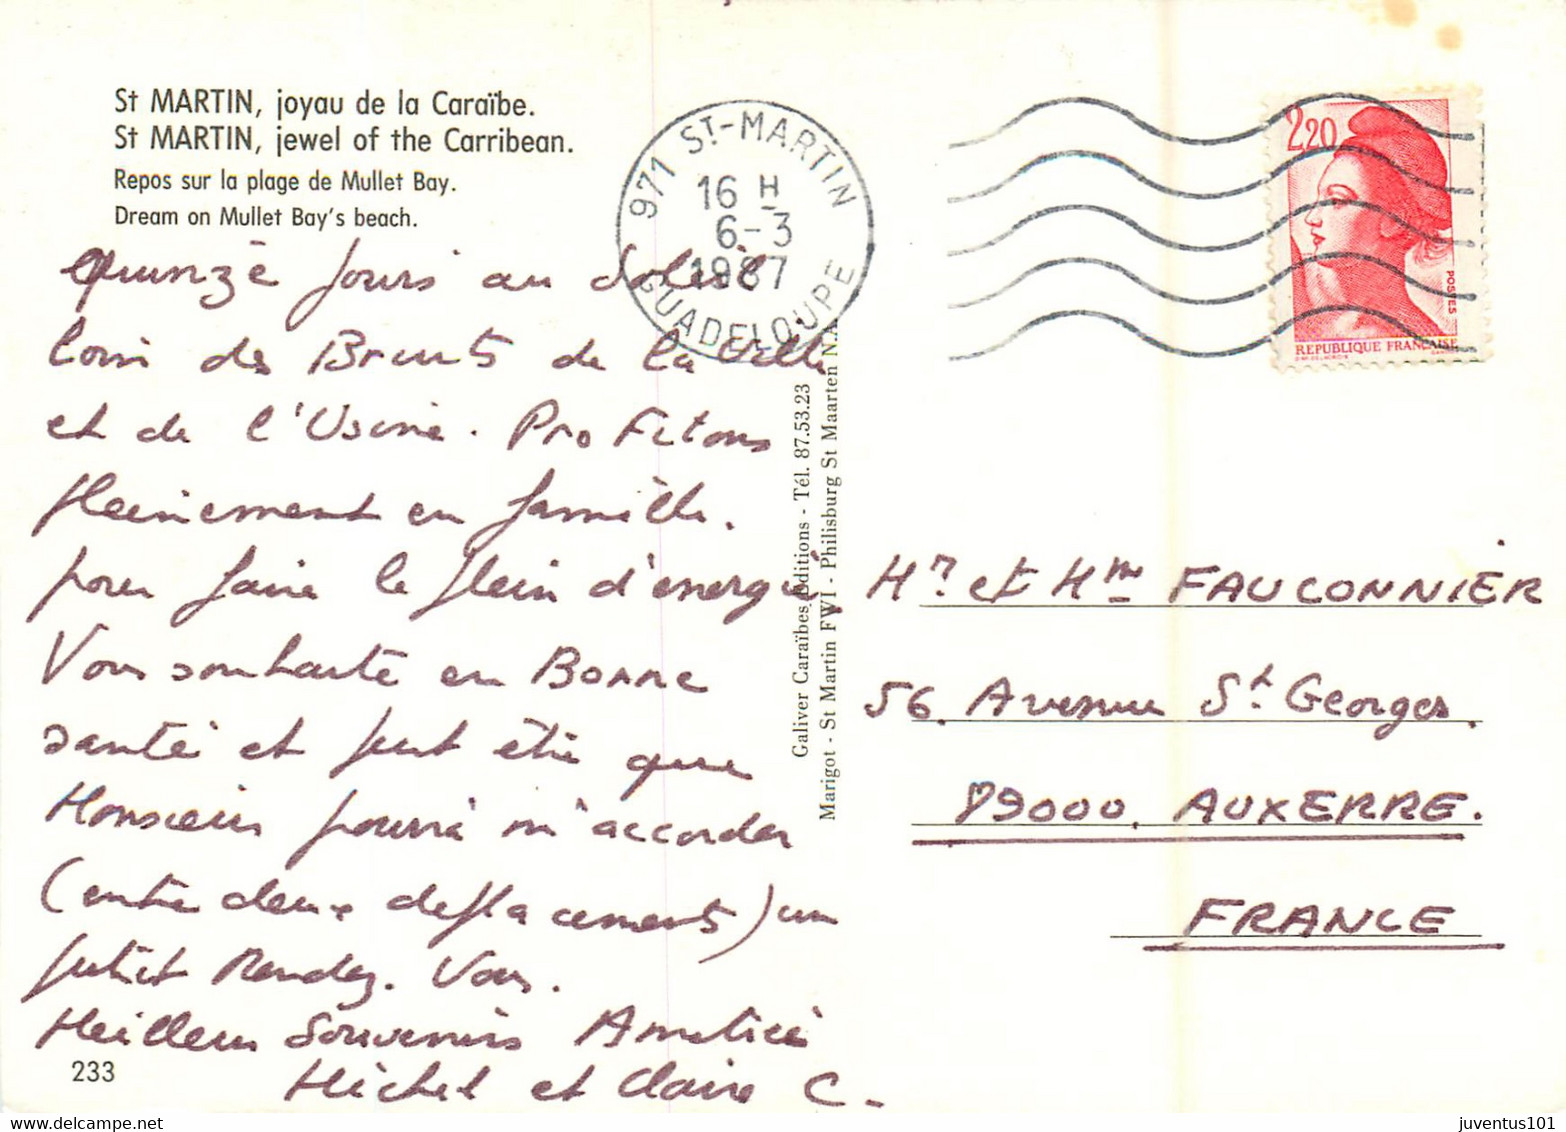 St MARTIN, joyau de la Caraïbe.
St MARTIN, jewel of the Carribean.
Repos sur la plage de Mullet Bay.
Dream on Mullet Bay's beach.
Quinze jours au Soleil
loin des Bruits de la Ville
et de l'Usine. Profitons
pleinement en famille.
pour faire le plein d'énergie.
Vous souhaite en Bonne
santé et peut être que
Monsieur pourra m'accorder
(entre deux deplacements) un
petit Rendez. Vous.
Meilleurs Souvenirs Amitiés
Michel et Claire C.
233
971 ST-MARTIN
16 H
6-3
1987
GUADELOUPE
2,20
POSTES
REPUBLIQUE FRANÇAISE
Galiver Caraïbes éditions - Tél. 87.53.23
Marigot - St Martin FWI - Philisburg St Maarten N.A
Mr et Mme FAUCONNIER
56. Avenue St Georges.
89000. AUXERRE.
FRANCE
juventus101